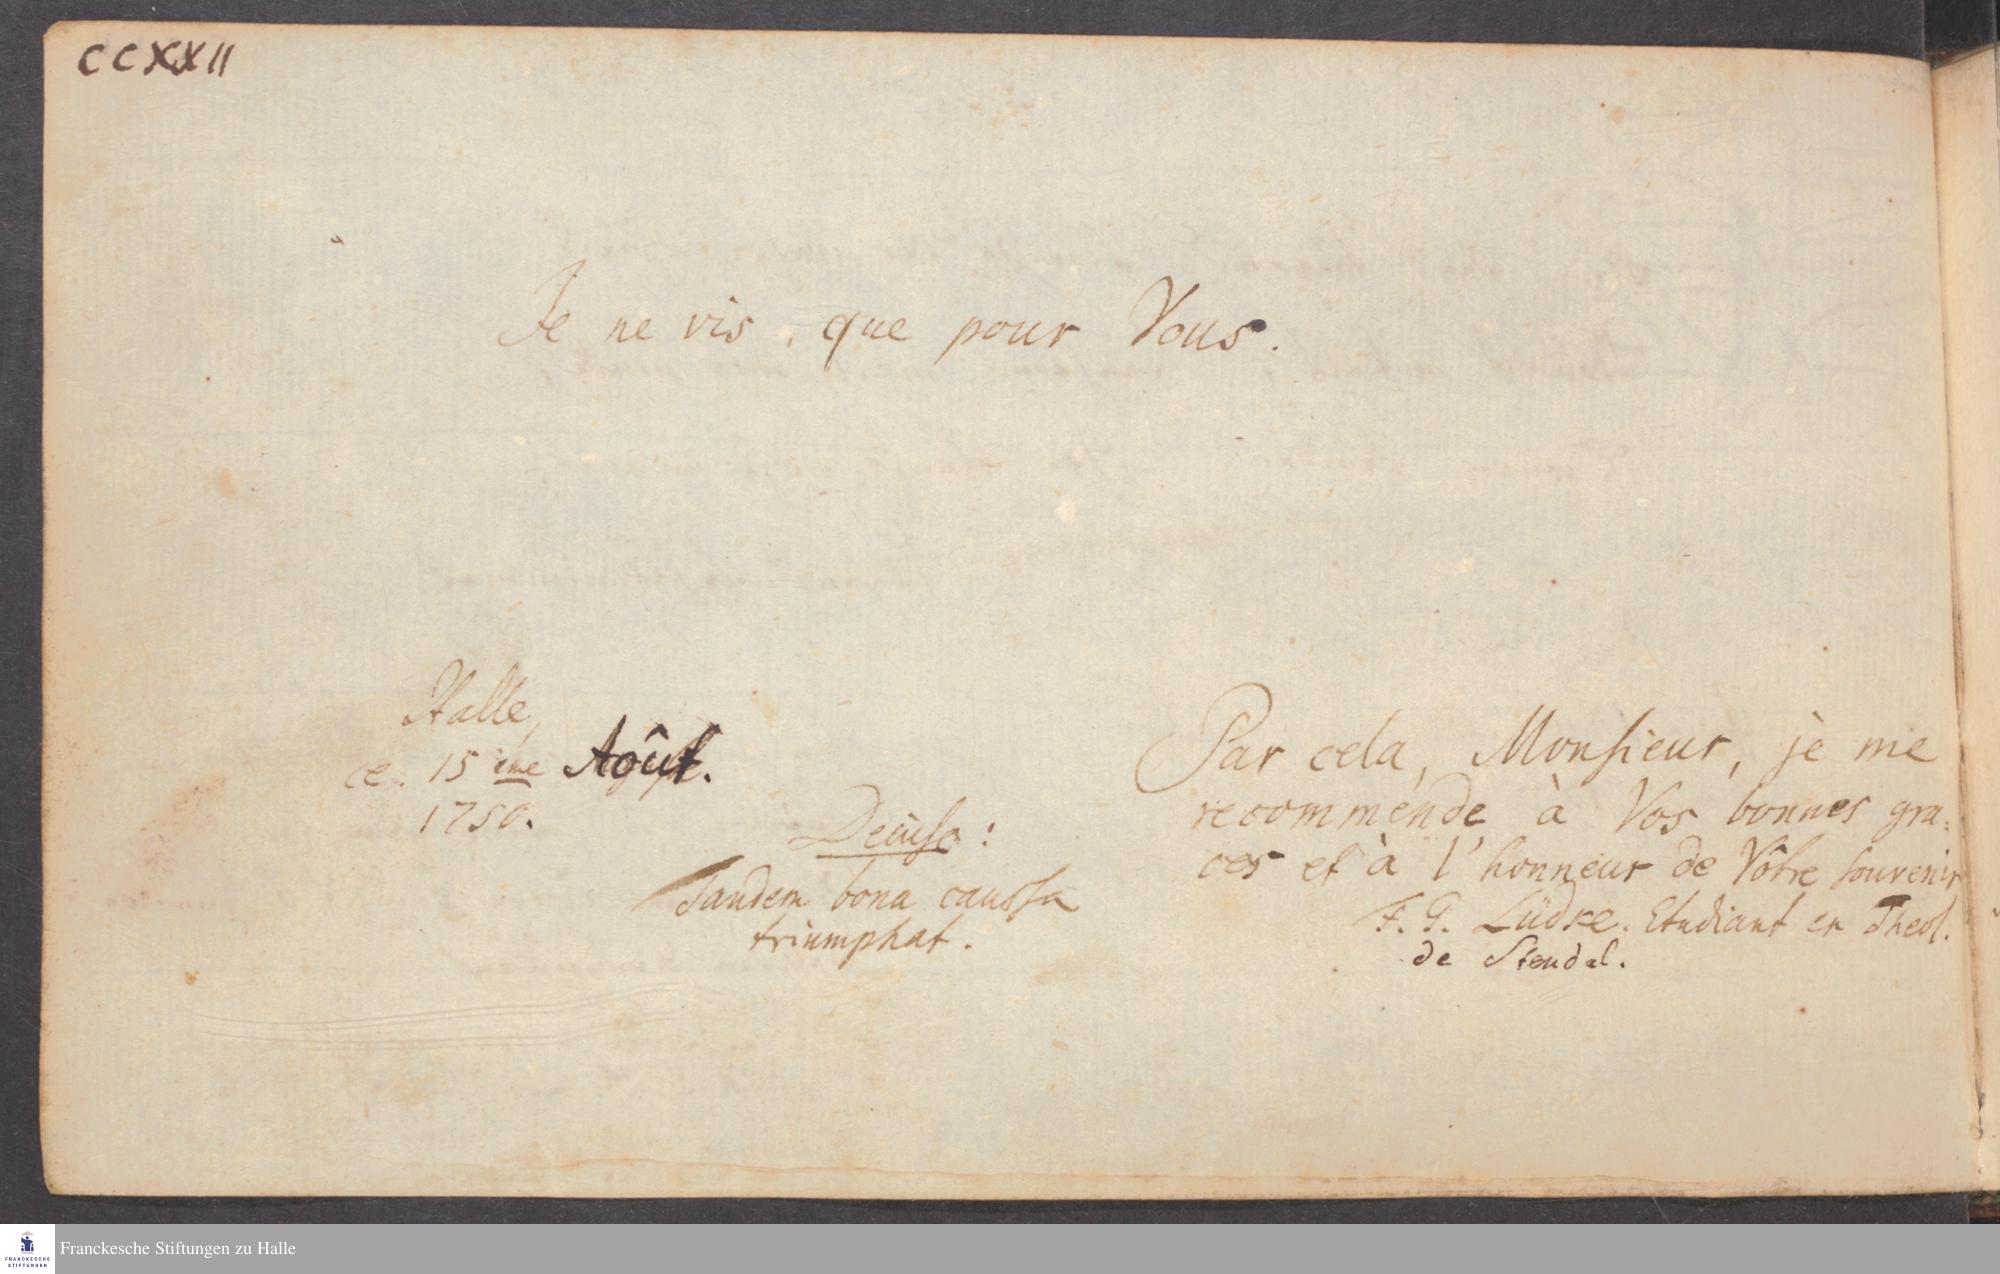 CCXXII
Je ne vis, que pour Vous.
Halle,
ce. 15 ème Aoûst.
1750.
Deuise:
Tandem bona caussa
triumphat.
Par cela, Monsieur, je me
recommende à Vos bonnes gra:
ces et à l'honneur de Vôtre souvenir
F. G. Lüdke. Etudiant en Theol.
de Stendal.
FRANCKESCHE
STIFTUNGEN
Franckesche Stiftungen zu Halle